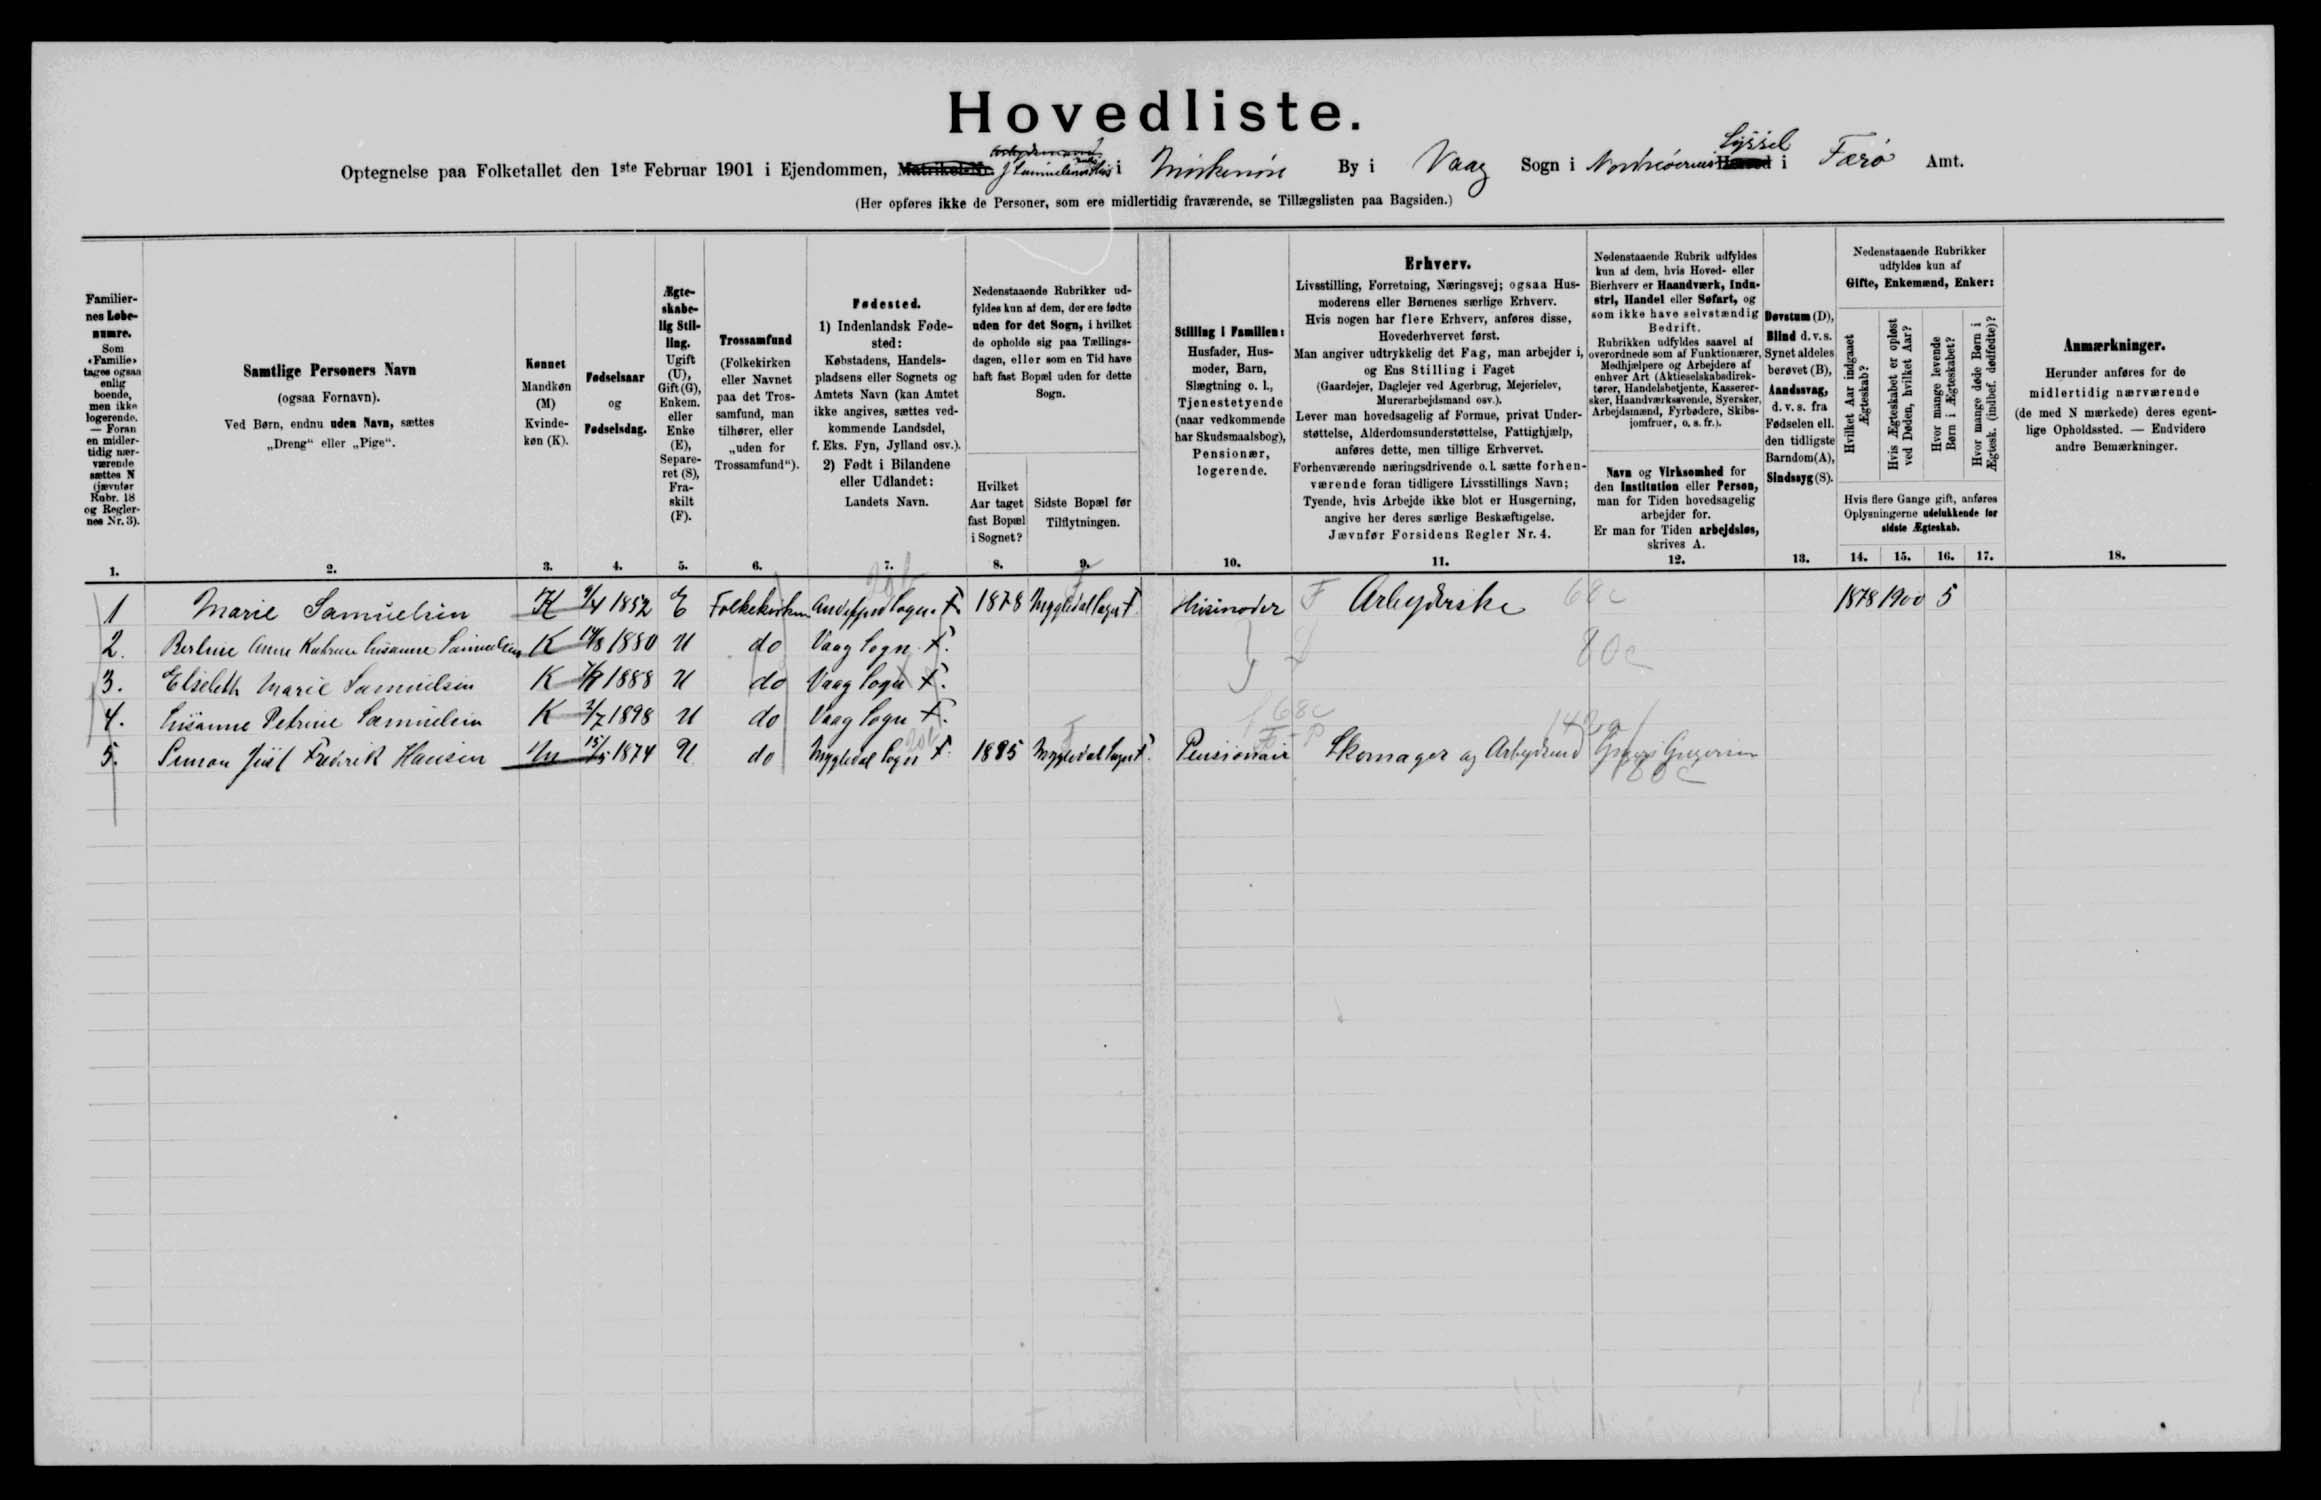 Hovedliste.
Optegnelse paa Folketallet den 1ste Februar 1901 i Ejendommen, Matrikel-Nr. J Samuelsens Hus i By i Vaag Sogn i Norderöernes Herred Syssel i Færø Amt.
(Her opføres ikke de Personer, som ere midlertidig fraværende, se Tillægslisten paa Bagsiden.)
Familiernes Løbenumre.
Som «Familie» tages ogsaa enlig boende, men ikke logerende. — Foran en midlertidig nærværende sættes N (jævnfør Rubr. 18 og Reglernes Nr. 3).
1.
Samtlige Personers Navn
(ogsaa Fornavn).
Ved Børn, endnu uden Navn, sættes
„Dreng“ eller „Pige“.
2.
Kønnet
Mandkøn (M)
Kvindekøn (K).
3.
Fødselsaar
og
Fødselsdag.
4.
Ægteskabelig Stilling.
Ugift (U), Gift (G), Enkem. eller Enke (E), Separeret (S), Fraskilt (F).
5.
Trossamfund
(Folkekirken eller Navnet paa det Trossamfund, man tilhører, eller „uden for Trossamfund“).
6.
Fødested.
1) Indenlandsk Fødested:
Købstadens, Handelspladsens eller Sognets og Amtets Navn (kan Amtet ikke angives, sættes vedkommende Landsdel, f. Eks. Fyn, Jylland osv.).
2) Født i Bilandene eller Udlandet:
Landets Navn.
7.
Nedenstaaende Rubrikker udfyldes kun af dem, der ere fødte uden for det Sogn, i hvilket de opholde sig paa Tællingsdagen, eller som en Tid have haft fast Bopæl uden for dette Sogn.
Hvilket Aar taget fast Bopæl i Sognet?
8.
Sidste Bopæl før Tilflytningen.
9.
Stilling i Familien:
Husfader, Husmoder, Barn, Slægtning o. l., Tjenestetyende (naar vedkommende har Skudsmaalsbog), Pensionær, logerende.
10.
Erhverv.
Livsstilling, Forretning, Næringsvej; ogsaa Husmoderens eller Børnenes særlige Erhverv.
Hvis nogen har flere Erhverv, anføres disse, Hovederhvervet først.
Man angiver udtrykkelig det Fag, man arbejder i, og Ens Stilling i Faget
(Gaardejer, Daglejer ved Agerbrug, Mejerielev, Murerarbejdsmand osv.).
Lever man hovedsagelig af Formue, privat Understøttelse, Alderdomsunderstøttelse, Fattighjælp, anføres dette, men tillige Erhvervet.
Forhenværende næringsdrivende o. l. sætte forhenværende foran tidligere Livsstillings Navn;
Tyende, hvis Arbejde ikke blot er Husgerning, angive her deres særlige Beskæftigelse.
Jævnfør Forsidens Regler Nr. 4.
11.
Nedenstaaende Rubrik udfyldes kun af dem, hvis Hoved- eller Bierhverv er Haandværk, Industri, Handel eller Søfart, og som ikke have selvstændig Bedrift.
Rubrikken udfyldes saavel af overordnede som af Funktionærer, Medhjælpere og Arbejdere af enhver Art (Aktieselskabsdirektører, Handelsbetjente, Kasserersker, Haandværkssvende, Syersker, Arbejdsmænd, Fyrbødere, Skibsjomfruer, o. s. fr.).
Navn og Virksomhed for den Institution eller Person, man for Tiden hovedsagelig arbejder for.
Er man for Tiden arbejdsløs, skrives A.
12.
Døvstum (D), Blind d. v. s. Synet aldeles berøvet (B), Aandssvag, d. v. s. fra Fødselen ell. den tidligste Barndom (A), Sindssyg (S).
13.
Nedenstaaende Rubrikker udfyldes kun af
Gifte, Enkemænd, Enker:
Hvilket Aar indgaaet Ægteskab?
Hvis Ægteskabet er opløst ved Døden, hvilket Aar?
Hvor mange levende Børn i Ægteskabet?
Hvor mange døde Børn i Ægtesk. (indbef. dødfødte)?
Hvis flere Gange gift, anføres Oplysningerne udelukkende for sidste Ægteskab.
14. 15. 16. 17.
Anmærkninger.
Herunder anføres for de midlertidig nærværende (de med N mærkede) deres egentlige Opholdssted. — Endvidere andre Bemærkninger.
18.
1 Marie Samuelsen K 1852 E Folkekirken Sogn F. 1878 Mygledal Sogn F. Husmoder F Arbejderske 68c 1878 1900 5
2. Berline Anne Katrine Susanne Samuelsen K 14/8 1880 U do Vaag Sogn F. 80c
3. Elsebeth Marie Samuelsen K 1888 U do Vaag Sogn F.
4. Susanne Petrine Samuelsen K 2/7 1898 U do Vaag Sogn F. 68c
5. Simon Just Fredrik Hansen M 15/5 1874 U do Mygledal Sogn F. 1885 Mygledal Sogn F. Pensionair Skomager og Arbejdsmd Gregersen 80c